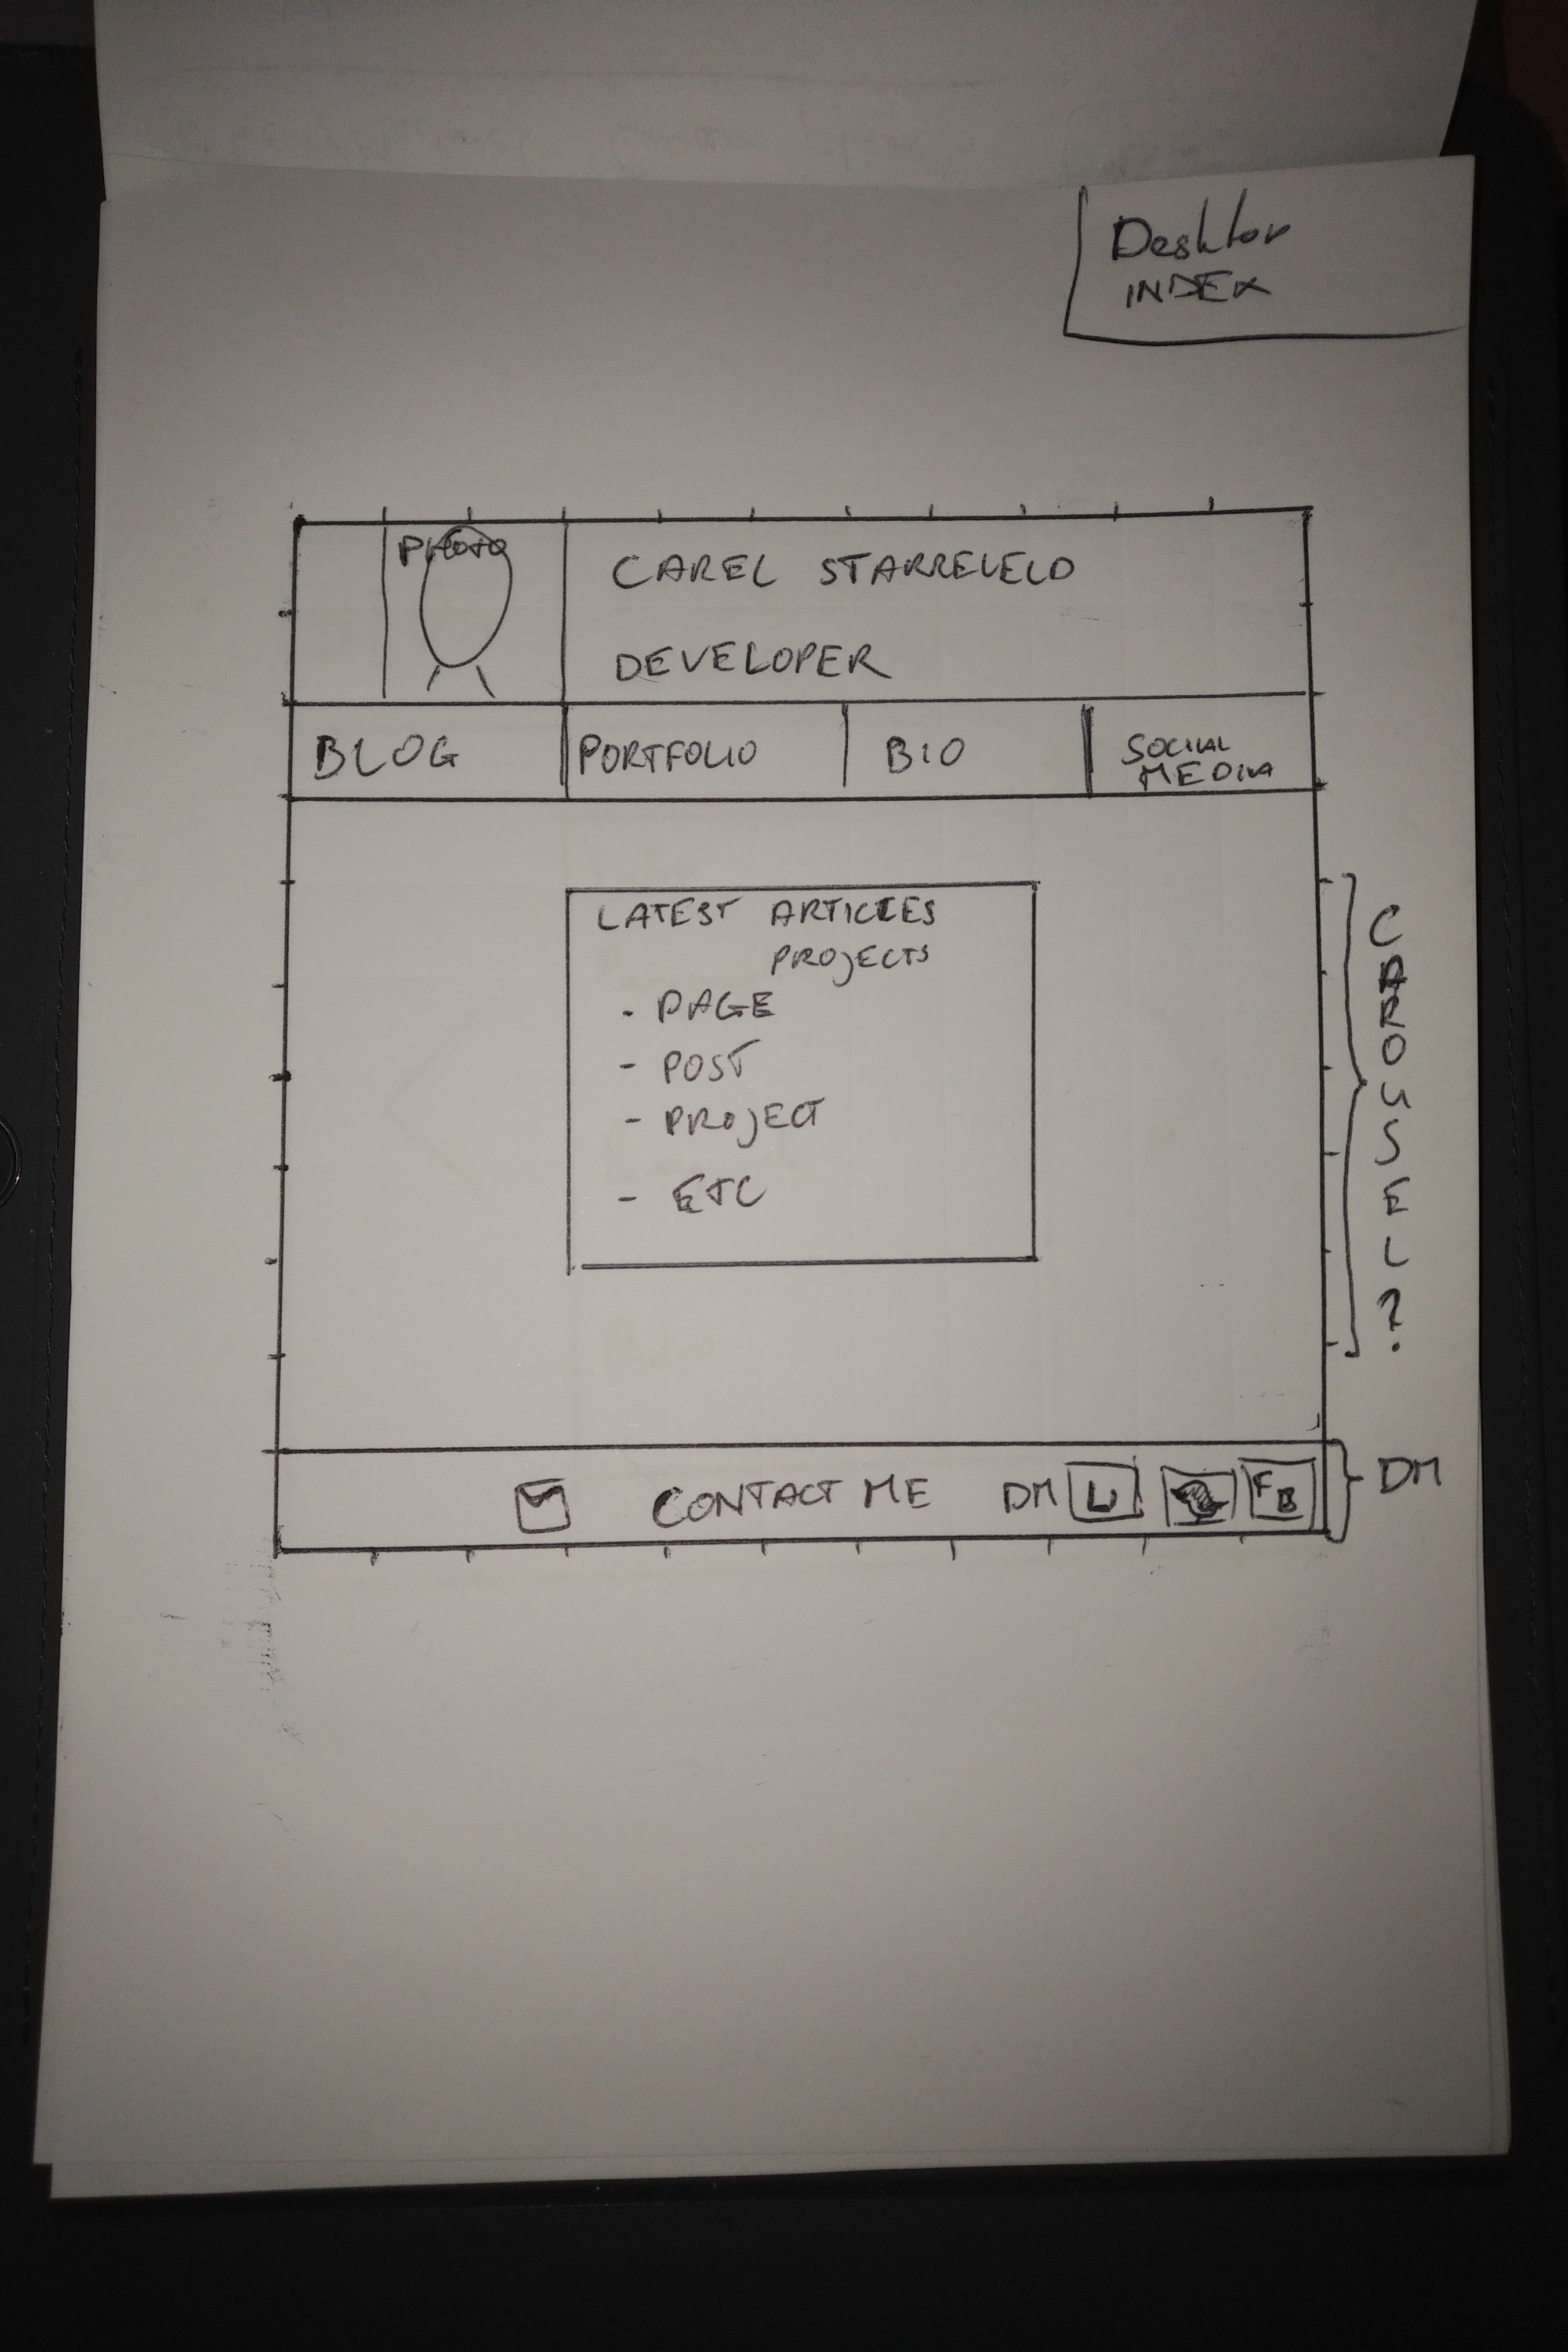 Desktop
INDEX
PHOTO
CAREL STARREVELD
DEVELOPER
BLOG
PORTFOLIO
BIO
SOCIAL
MEDIA
LATEST ARTICLES
PROJECTS
- PAGE
- POST
- PROJECT
- ETC
CAROUSEL?
CONTACT ME DM
FB
DM